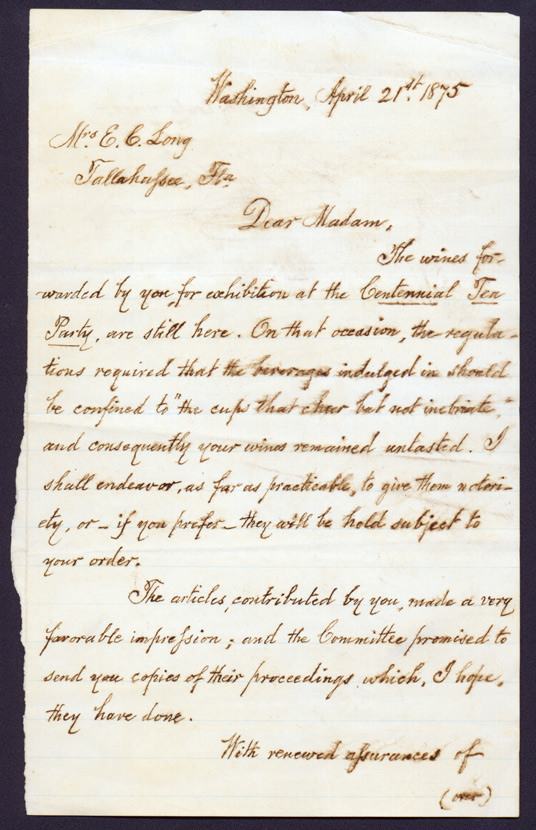 Washington, April 21st. 1875
Mrs. E. C. Long
Tallahassee, Fla
Dear Madam,
The wines for-
warded by you, for exhibition at the Centennial Tea
Party, are still here. On that occasion, the regula-
tions required that the beverages indulged in should
be confined to "the cups that cheer but not inebriate,"
and consequently your wines remained untasted. I
shall endeavor, as far as practicable, to give them notori-
ety, or – if you prefer – they will be held subject to
your order.
The articles, contributed by you, made a very
favorable impression; and the Committee promised to
send you copies of their proceedings which, I hope,
they have done.
With renewed assurances of
(over)